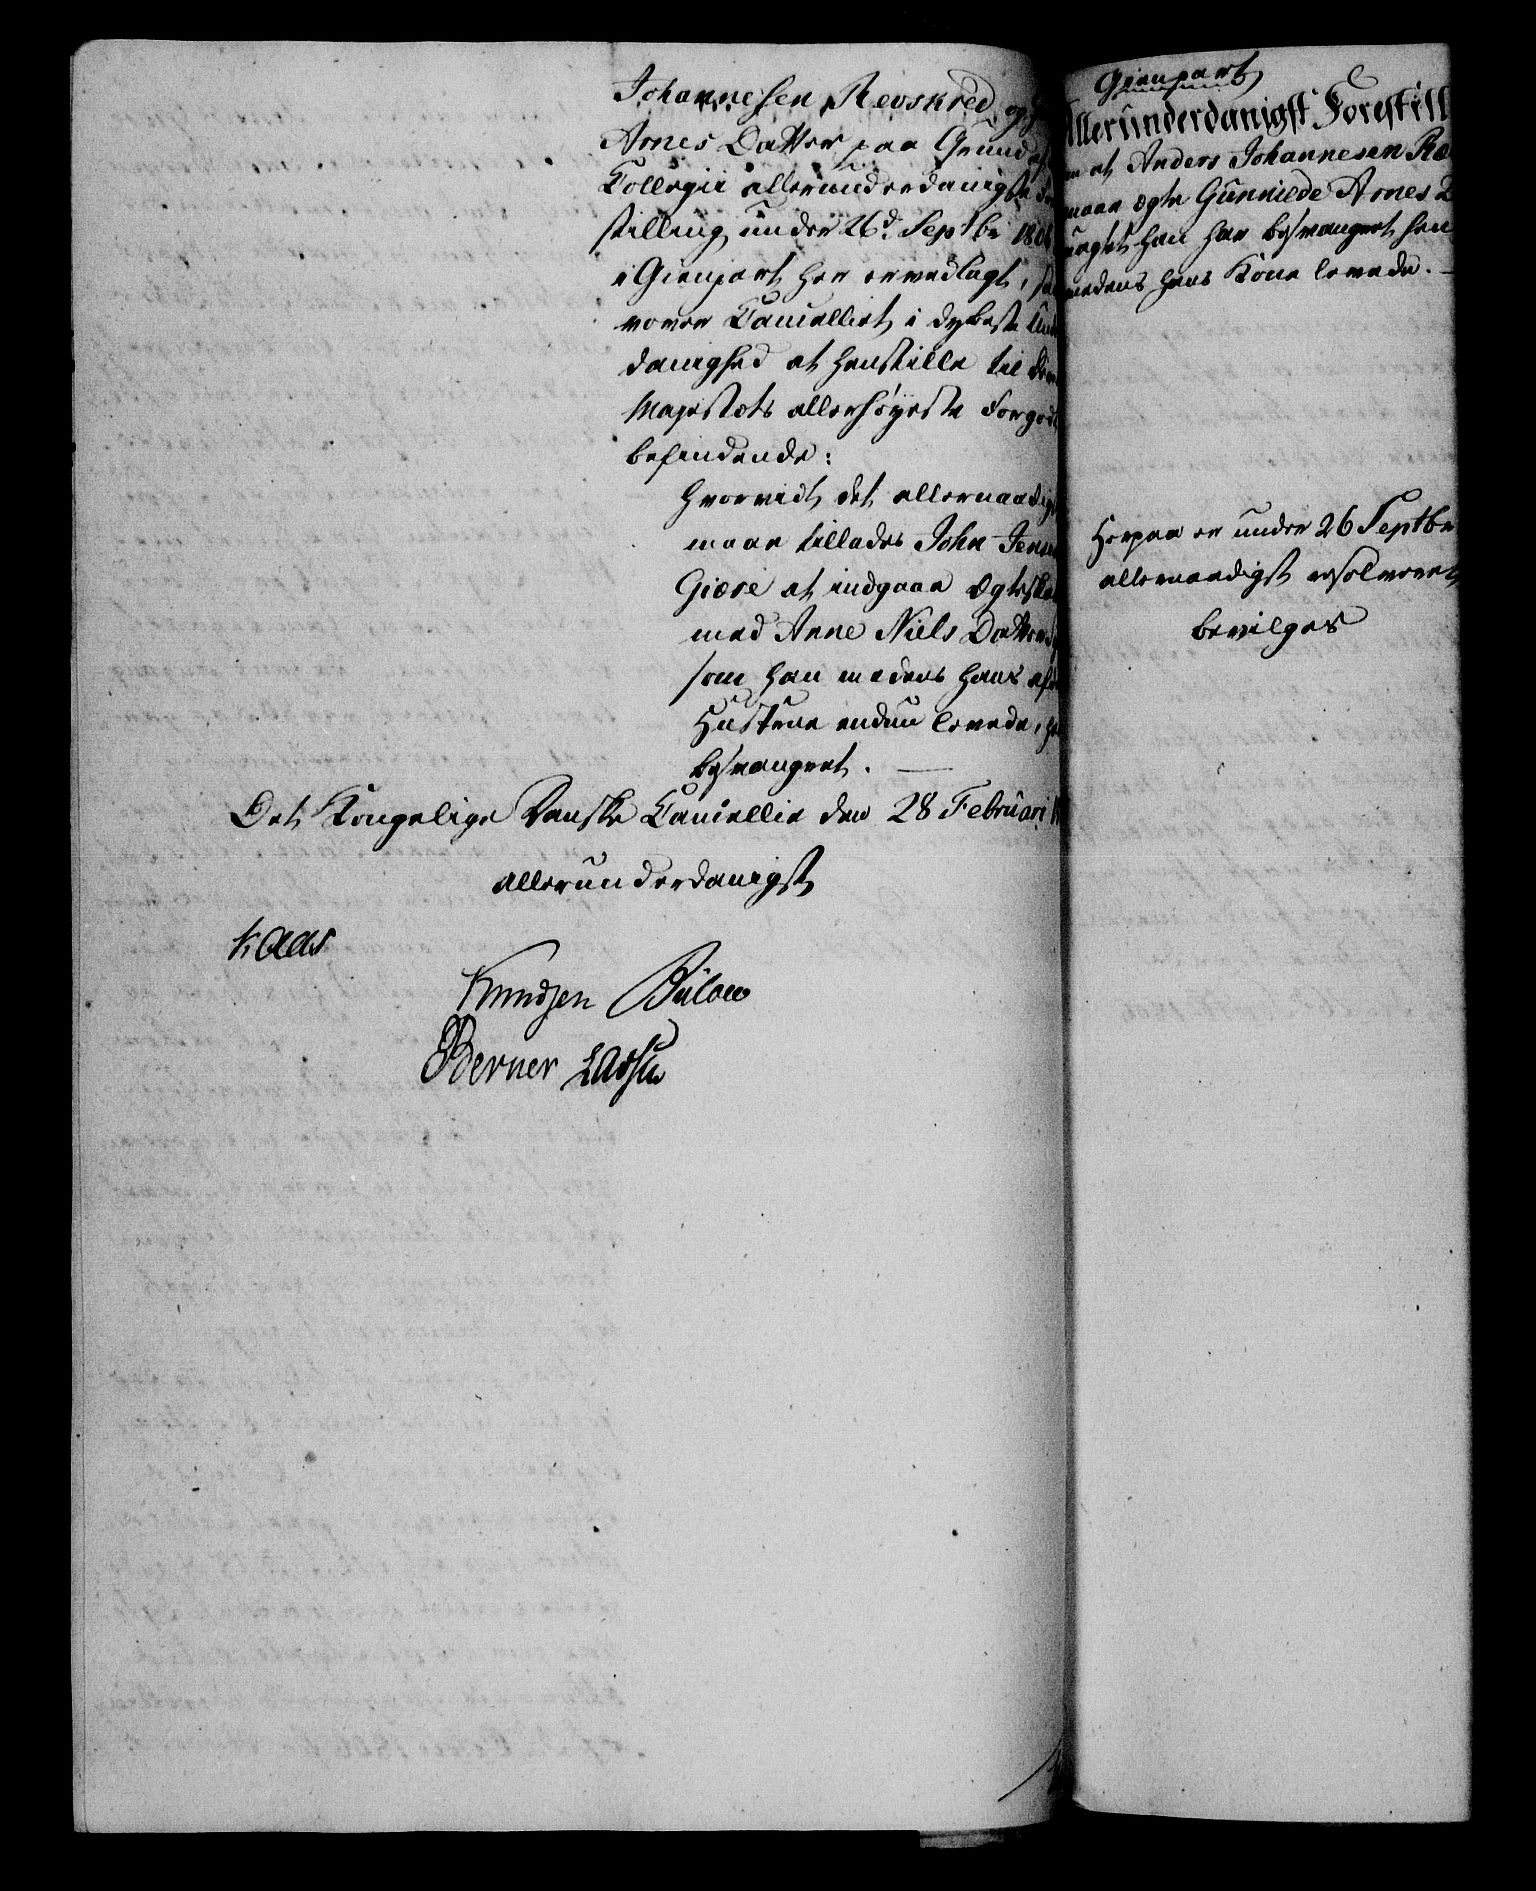 Johannesen Revskred, og
Arnes Datter paa Grund af
Collegii allerunderdanigste
stilling under 26d Septbr 180
i Gienpart her er vedlagt,
vover Cancelliet i dybeste Und
danighed at henstille til
Majestæts allerhøyeste Forgodt
befindende:
hvorvidt det allernaadigst
maae tillades John Jens
Giøse at indgaae Ægteska
med Anne Niels Datter
som han medens hans
Hustrue endnu levede,
besvangret.
Det Kongelige Danske Cancellie den 28 Februari
allerunderdanigst
Kaas
Knudsen Bülow
Berner Lassen
Gienpart
Allerunderdanigst Forestill
at Anders Johannesen Re
maae ægte Gunnilde Arnes D
uagtet han har besvangret hen
medens hans Kone levede.
Herpaa er under 26 Septbr
allernaadigst resolveret
bevilges